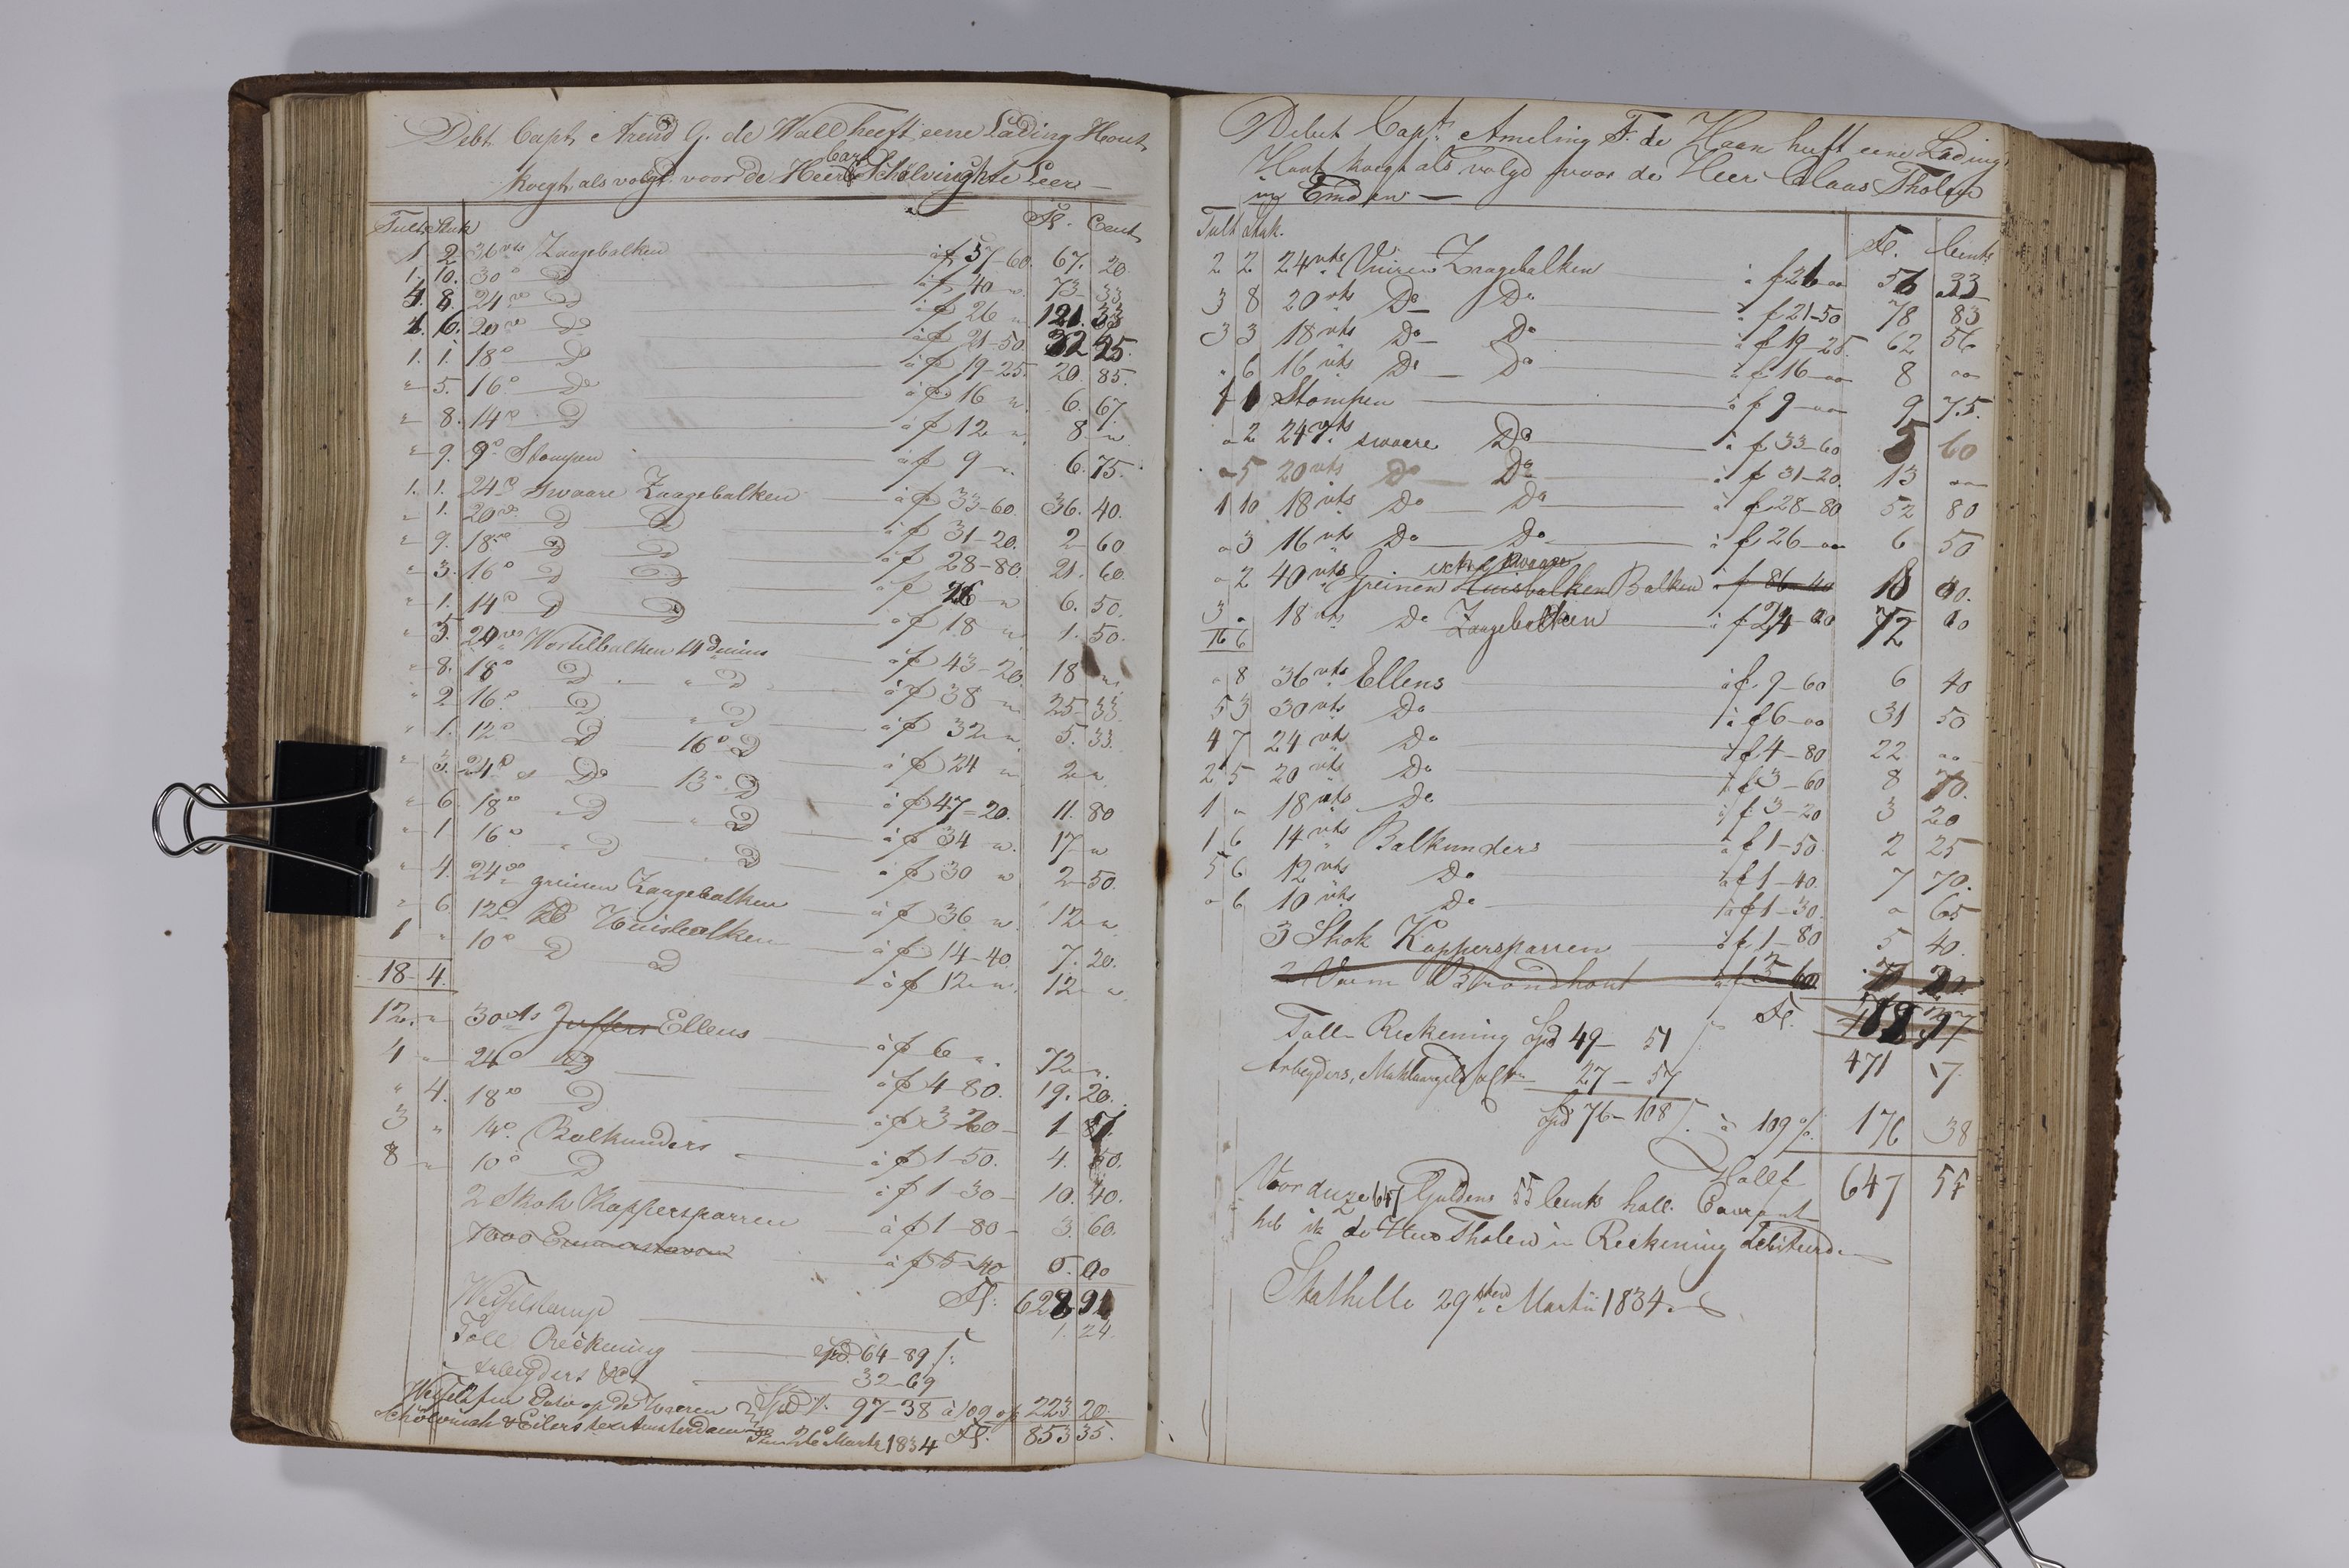 Debt. Capt. Arend G. de Wall heeft eene Lading Hout
Carl
koegt, als volgt voor de Heer Schölvingh te Leer
Tult. Stuk Fl. Cents
1 2 36 vts Zaagebalken à f 57-60. 67. 20
1. 10. 30 " D à f 40 " 73 33
4. 8. 24 vo D à f 26 " 121. 33
1. 6. 20 vo D à f 21-50 32 25.
1. 1. 18 " D à f 19-25. 20. 85.
" 5. 16 " Do à f 16 " 6. 67
" 8. 14 " D à f 12 " 8 "
" 9. 9 " Stompen à f 9 " 6. 75.
1. 1. 24 " Swaare Zaagebalken à f 33-60 36. 40.
" 1. 20 vo D D à f 31-20. 2 60
" 9. 18 vo D D à f 28-80. 21. 60.
" 3. 16 " D D à f 26 " 6. 50.
" 1. 14 " D D à f 18 " 1. 50.
" 5. 20 vos Wortelbalken 14 duims à f 43-20 18 "
" 8. 18 " D " D à f 38 " 25 33.
" 2 16 " D " D à f 32 " 5. 33.
" 1. 12 " D 16 " D à f 24 " 2 "
" 3. 24 " Do 13 " D à f 47-20. 11. 80
" 6 18 " D " D à f 34 " 17 "
" 1 16 " D " D à f 30 " 2 50.
" 4. 24 " greinen Zaagebalken à f 36 " 12 "
" 6. 12 " Do Huisbalken à f 14-40 7. 20.
1 " 10 " D D à f 12 " 12 "
18 4.
12. " 30 vts Juffers Ellens à f 6 " 72 "
4 " 24 " D à f 4-80. 19. 20.
" 4. 18 " D à f 3-20 1 07.
3 " 14 " Balkunders à f 1-50. 4. 50.
8 " 10 " D à f 1-30 10. 40.
2 Skok Kappersparren à f 1-80 3. 60.
1000 à f 5-40 0. 00
Fl. 628 91
Wexelstemp 1. 24.
Toll Reckening Spd. 64-89 f:
Arbeyders &c 32-69
Spd. 97-38 à 109 % 223 20.
Wexel pr Dato op de Heeren
Schölvinch & Eilers te Amsterdam
26 Marts 1834 Fl. 853 35.
Debet Capt. Ameling F. de Haan heeft eene Lading
Hout koegt als volgd voor de Heer Claas Tholen
in Emden —
Tult Stuk. Fl. Cents
2 2 24 vts Vuiren Zaagebalken à f 26-00 56 33
3 8 20 vts Do Do à f 21-50 78 83
3 3 18 vts Do Do à f 19-25 62 56
" 6 16 vts Do Do à f 16-00 8 00
1 1 Stompen à f 9-00 9 75.
" 2 24 vts swaare Do à f 33-60 5 60
" 5 20 vts Do Do à f 31-20. 13 00
1 10 18 vts Do Do à f 28-80 52 80
" 3 16 vts Do Do à f 26-00 6 50
" 2 40 vts Greinen Huisbalken Balken à f 86-40 18 00.
3 " 18 vts Do Zaagebalken à f 24-00 72 00
16 6
" 8 36 vts Ellens à f. 9-60 6 40
5 3 30 vts Do à f 6-00 31 50
4 7 24 vts Do à f 4-80 22 00
2 5 20 vts Do à f 3-60 8 70.
1 " 18 vts Do à f 3-20 3 20
1 6 14 vts Balkunders à f 1-50 2 25
5 6 12 vts Do à f 1-40. 7 70.
" 6 10 vts Do à f 1-30. " 65
3 Skok Kappersparren à f 1-80 5 40.
2 Vaem Brandhout à f 3-60 7 20
Fl.
Toll Reckening Spd 49- 51 471 17
Arbeyders, &c 27-57
Spd 76-108 f. à 109 % 176 38
Holl f 647 55
Voor deeze 647 Guldens 55 Cents holl. Courant
heb ik de Heer Tholen in Reckening Debiteerd.
Stathelle 29 sten Martii 1834.